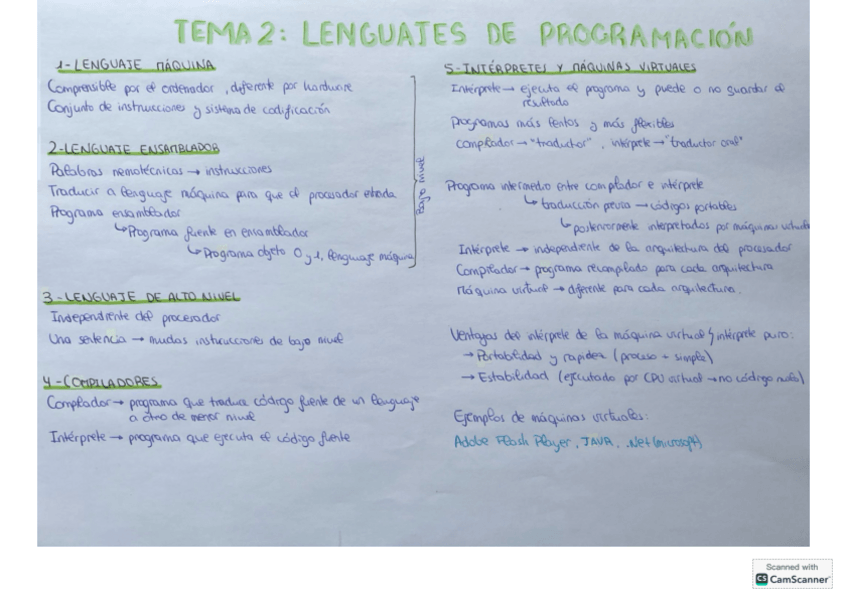 TEMA 2: LENGUAJES DE PROGRAMACIÓN
1-LENGUAJE MÁQUINA
Comprensible por el ordenador, diferente por hardware
Conjunto de instrucciones y sistema de codificación
2-LENGUAJE ENSAMBLADOR
Palabras nemotécnicas → instrucciones
Traducir a lenguaje máquina para que el procesador entienda
Programa ensamblador
↳ Programa fuente en ensamblador
↳ Programa objeto 0 y 1, lenguaje máquina
Bajo nivel
3-LENGUAJE DE ALTO NIVEL
Independiente del procesador
Una sentencia → muchas instrucciones de bajo nivel
4-COMPILADORES
Compilador → programa que traduce código fuente de un lenguaje
a otro de menor nivel
Intérprete → programa que ejecuta el código fuente
5-INTÉRPRETES Y MÁQUINAS VIRTUALES
Intérprete → ejecuta el programa y puede o no guardar el
resultado
Programas más lentos y más flexibles
compilador → "traductor", intérprete → "traductor oral"
Programa intermedio entre compilador e intérprete
↳ traducción previa → códigos portables
↳ posteriormente interpretados por máquinas virtuales
Intérprete → independiente de la arquitectura del procesador
Compilador → programa recompilado para cada arquitectura
Máquina virtual → diferente para cada arquitectura.
Ventajas del intérprete de la máquina virtual y intérprete puro:
→ Portabilidad y rapidez (proceso + simple)
→ Estabilidad (ejecutado por CPU virtual → no código)
Ejemplos de máquinas virtuales:
Adobe Flash Player, JAVA, .Net (microsoft)
Scanned with
CS CamScanner